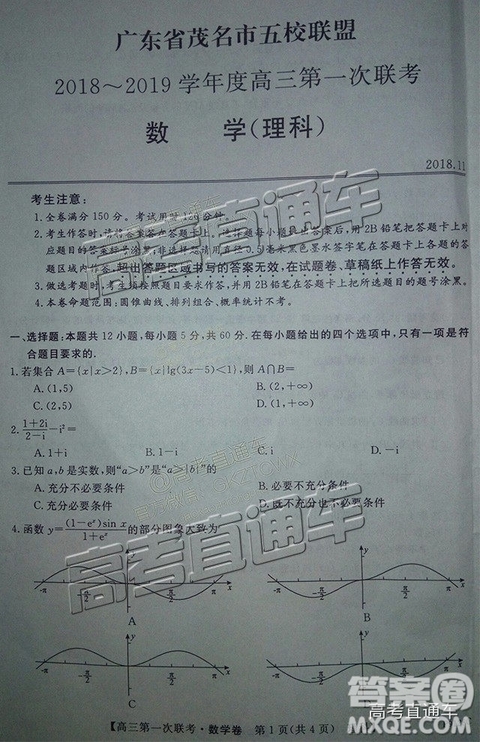 广东省茂名市五校联盟
2018～2019 学年度高三第一次联考
数 学(理科)
2018.11
考生注意:
1.全卷满分 150 分。考试用时 120 分钟。
2.考生作答时,请将答案答在答题卡上。选择题每小题选出答案后,用 2B 铅笔把答题卡上对
应题目的答案标号涂黑;非选择题请用直径 0.5 毫米黑色墨水签字笔在答题卡上各题的答
题区域内作答,超出答题区域书写的答案无效,在试题卷、草稿纸上作答无效。
3.做选考题时,考生须按照题目要求作答,并用 2B 铅笔在答题卡上把所选题目的题号涂黑。
4.本卷命题范围:圆锥曲线、排列组合、概率统计不考。
一、选择题:本题共 12 小题,每小题 5 分,共 60 分.在每小题给出的四个选项中,只有一项是符
合题目要求的.
1.若集合 A={x|x>2},B={x|lg(3x-5)<1},则 A∩B=
A.(1,5) B.(2,+∞)
C.(2,5) D.(1,+∞)
2.(1+2i)/(2-i)-i²=
A.1+i B.1-i C.i D.-i
3.已知 a,b 是实数,则“a>b”是“a>|b|”的
A.充分不必要条件 B.必要不充分条件
C.充要条件 D.既不充分也不必要条件
4.函数 y=(1-eˣ)sin x/(1+eˣ) 的部分图象大致为
y y
-π -π/2 π/2 π x -π -π/2 π/2 π x
A B
y y
-π -π/2 π/2 π x -π -π/2 π/2 π x
C
【高三第一次联考·数学卷 第 1 页(共 4 页)
高考直通车
高考直通车
高考直通车
高考直通车
答案卷